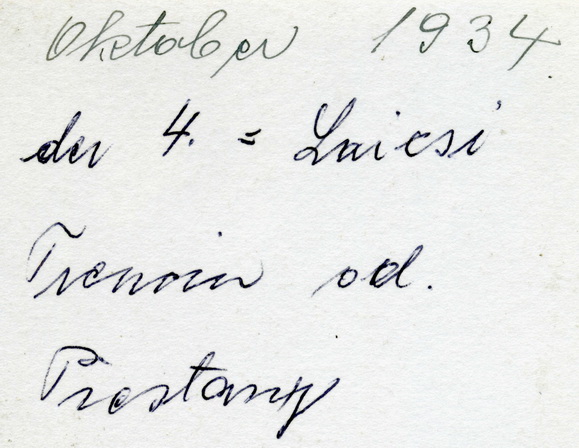 Oktober 1934
der 4. = Laicsi
Trencin od.
Piestany